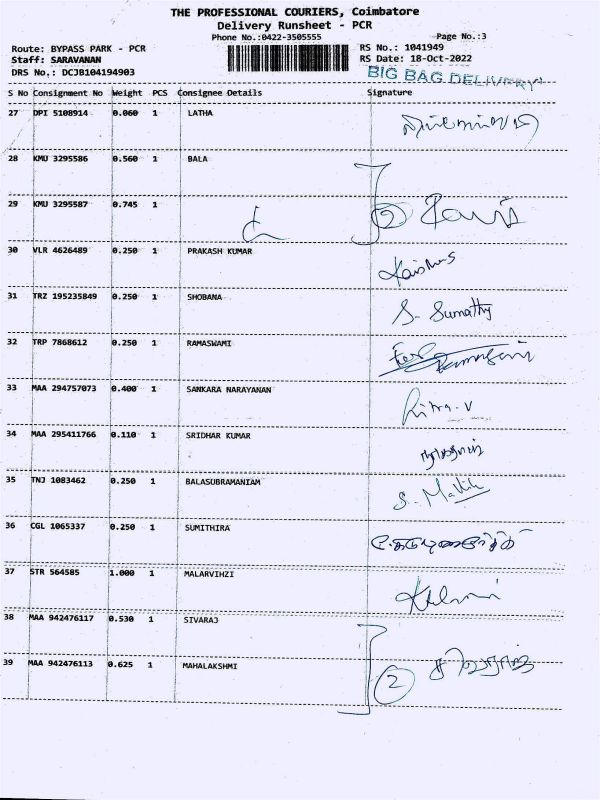 THE PROFESSIONAL COURIERS, Coimbatore
Delivery Runsheet - PCR
Phone No.:0422-3505555 Page No.:3
Route: BYPASS PARK - PCR RS No.: 1041949
Staff: SARAVANAN RS Date: 18-Oct-2022
DRS No.: DCJB104194903 BIG BAG DELIVERY
S No Consignment No Weight PCS Consignee Details Signature
27 DPI 5108914 0.060 1 LATHA
28 KMU 3295586 0.560 1 BALA
29 KMU 3295587 0.745 1 2
30 VLR 4626489 0.250 1 PRAKASH KUMAR
31 TRZ 195235849 0.250 1 SHOBANA S. Sumathy
32 TRP 7868612 0.250 1 RAMASWAMI
33 MAA 294757073 0.400 1 SANKARA NARAYANAN
34 MAA 295411766 0.110 1 SRIDHAR KUMAR
35 TNJ 1083462 0.250 1 BALASUBRAMANIAM
36 CGL 1065337 0.250 1 SUMITHIRA
37 STR 564585 1.000 1 MALARVIHZI
38 MAA 942476117 0.530 1 SIVARAJ
39 MAA 942476113 0.625 1 MAHALAKSHMI 2